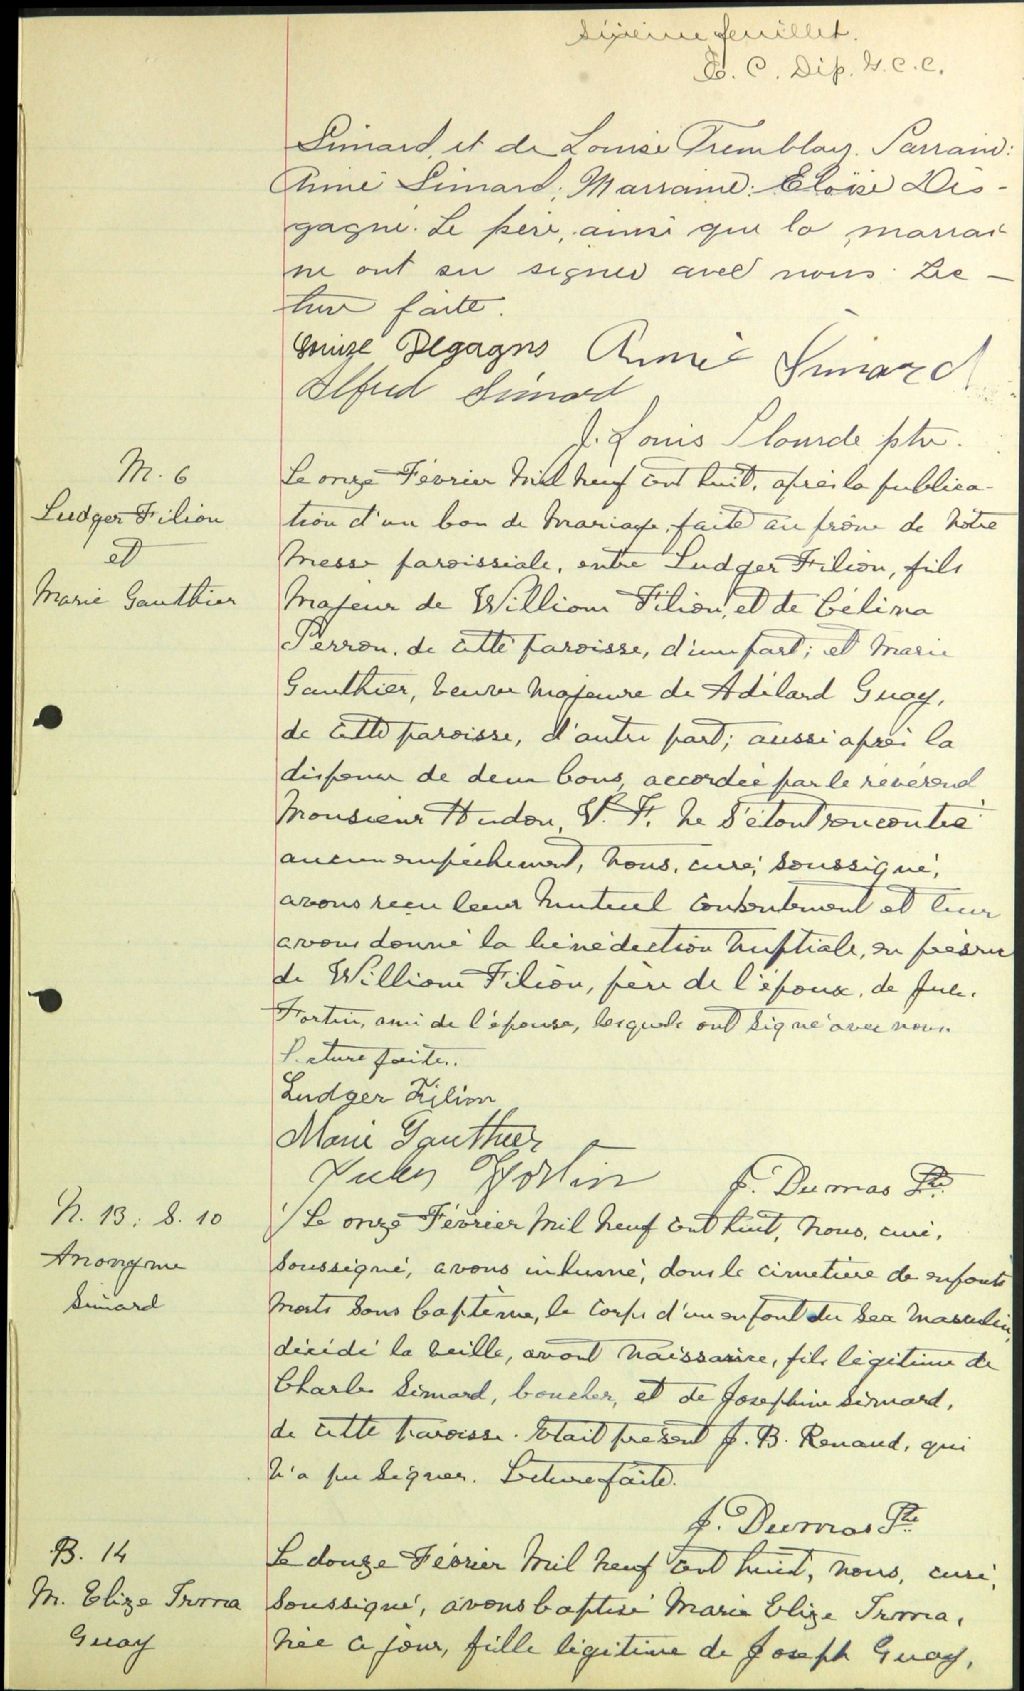 Sixième feuillet.
E. C. Dép. G. C. C.
Simard, et de Louise Tremblay. Parrain:
Aimé Simard; Marraine: Eloïse Dés-
gagné. Le père, ainsi que la marrai-
ne ont su signer avec nous. Lec-
ture faite.
Degagns Aimé Simard
Alfred Simard
J. Louis Plourde ptre.
M. 6
Ludger Filion
et
Marie Gauthier
Le onze Février mil neuf cent huit, après la publica-
tion d'un ban de mariage, faite au prône de notre
Messe paroissiale, entre Ludger Filion, fils
Majeur de William Filion, et de Célina
Perron, de cette paroisse, d'une part; et Marie
Gauthier, veuve majeure de Adélard Guay,
de cette paroisse, d'autre part; aussi après la
dispense de deux bans, accordée par le révérend
Monsieur Hudon, V. F. ne s'étant rencontré
aucun empêchement, nous, curé, soussigné,
avons reçu leur mutuel consentement et leur
avons donné la bénédiction nuptiale, en présence
de William Filion, père de l'époux, de Jules
Fortin, ami de l'épouse, lesquels ont signé avec nous.
Lecture faite..
Ludger Filion
Marie Gauthier
Jules Fortin J. Dumas Ptre
N. 13; S. 10
Anonyme
Simard
Le onze Février mil neuf cent huit, nous, curé,
soussigné, avons inhumé, dans le cimetière de enfants
morts sans baptême, le corps d'un enfant du sexe masculin,
décédé la veille, avant naissance, fils légitime de
Charles Simard, boucher, et de Joséphine Simard,
de cette paroisse. Etait présent J. B. Renaud, qui
n'a pu signer. Lecture faite.
J. Dumas Ptre
B. 14
M. Elize Irma
Guay
Le douze Février mil neuf cent huit, nous, curé,
soussigné, avons baptisé Marie Elize Irma,
née ce jour, fille légitime de Joseph Guay,